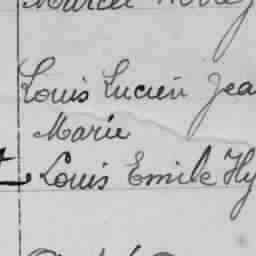 Marcel
Louis Lucien Jea
Marie
Louis Emile Hy